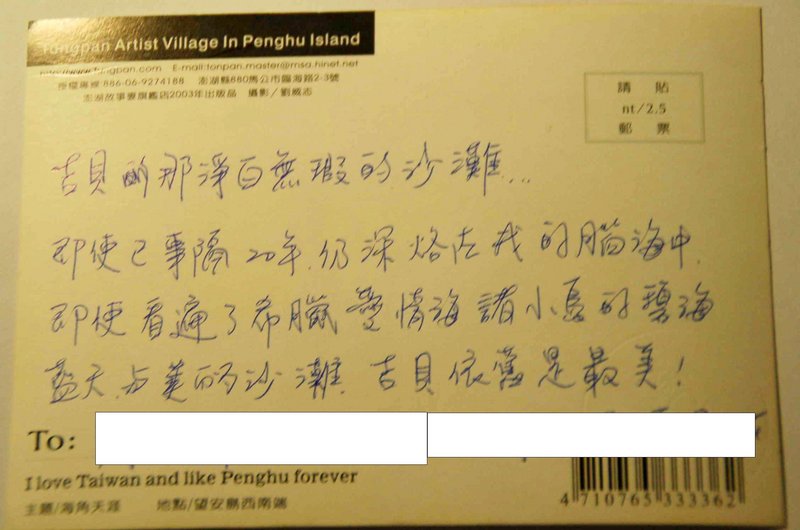 Tongpan Artist Village In Penghu Island
E-mail:tonpan.master@msa.hinet.net
授權專線 886-06-9274188 澎湖縣880馬公市臨海路2-3號
澎湖故事寮旗艦店2003年出版品 攝影/劉威志
請貼
nt/2.5
郵票
吉貝 那淨白無瑕的沙灘...
即使已事隔20年,仍深烙在我的腦海中,
即使看遍了希臘愛情海諸小島的碧海
藍天,与美的沙灘,吉貝依舊是最美!
To:
I love Taiwan and like Penghu forever
主題/海角天涯 地點/望安島西南端
4 710765 333362